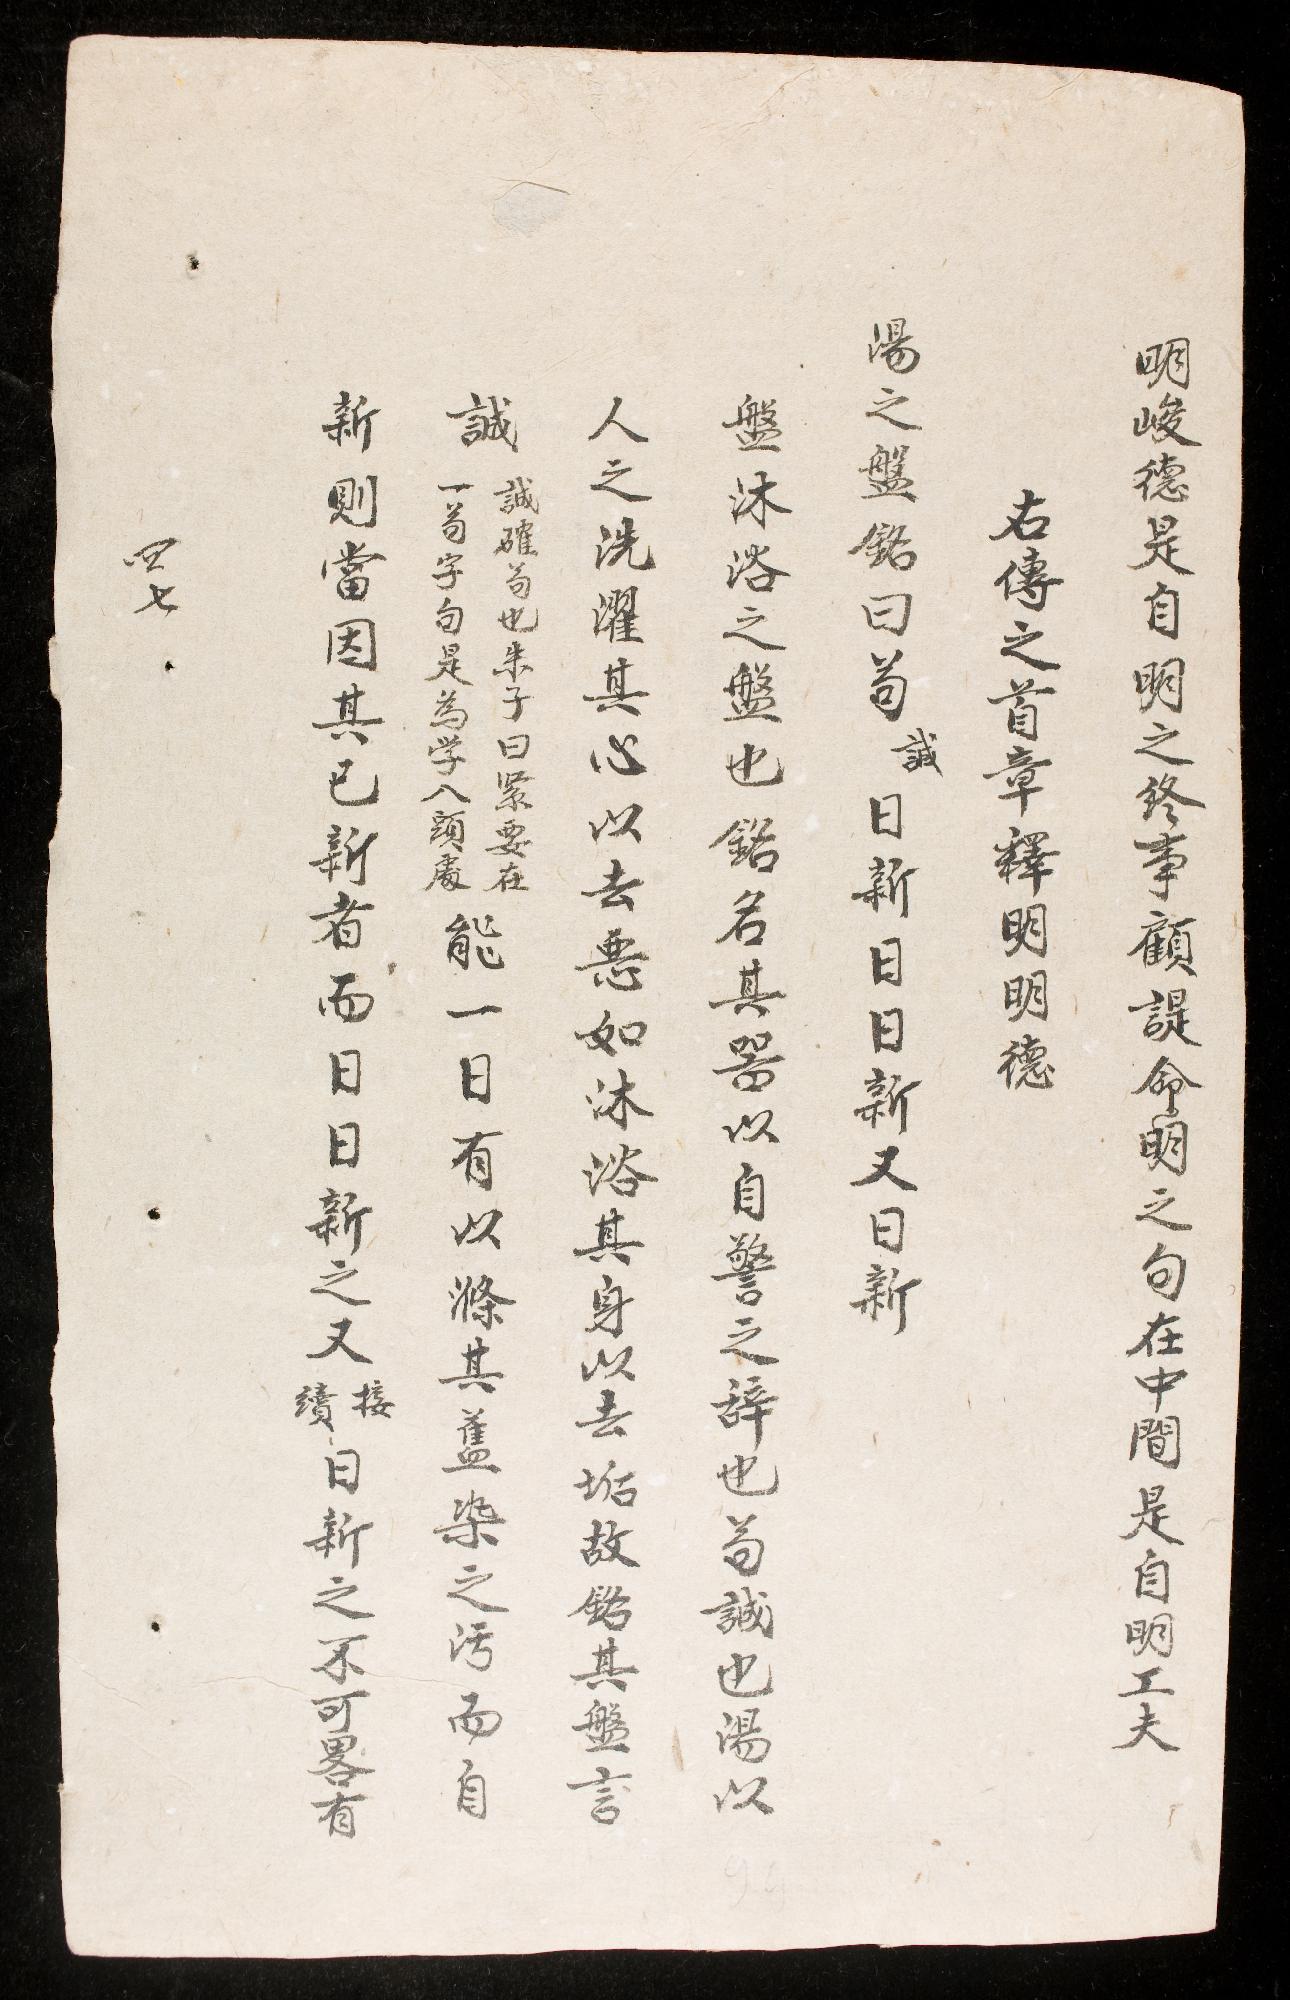 明峻德是自明之終事顧諟命明之句在中間是自明工夫
右傳之首章釋明明德
湯之盤銘曰苟誠日新日日新又日新
盤沐浴之盤也銘名其器以自警之辞也苟誠也湯以
人之洗濯其心以去惡如沐浴其身以去垢故銘其盤言
誠
誠確苟也朱子曰緊要在
一苟字句是為学入頭處
能一日有以滌其舊染之汚而自
新則當因其已新者而日日新之又
接
續
日新之不可畧有
四七